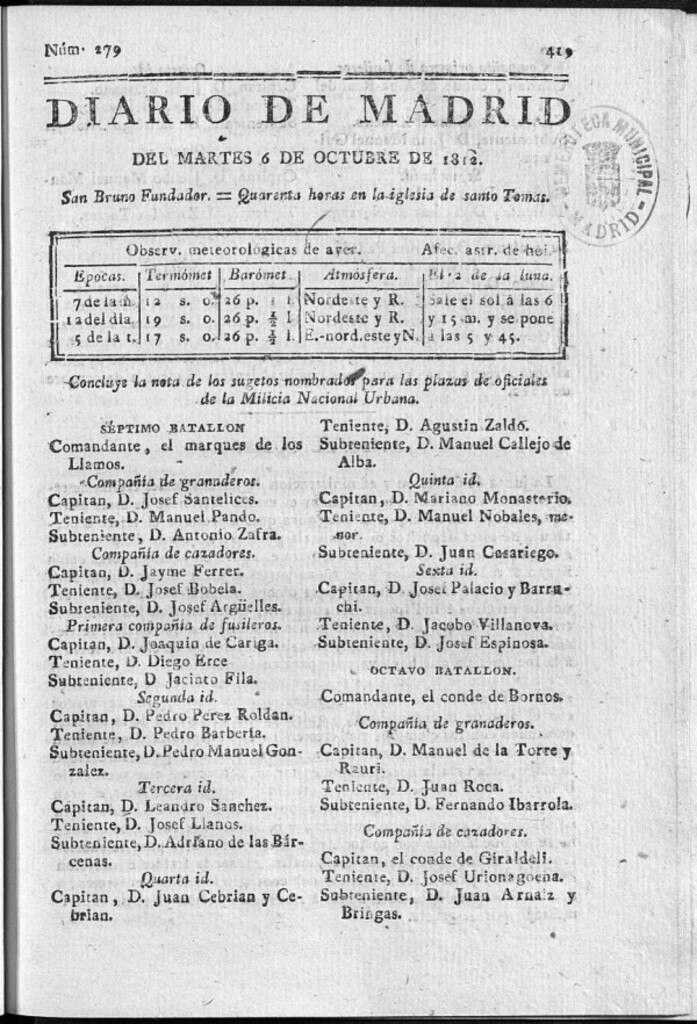 Núm. 279
419
DIARIO DE MADRID
DEL MARTES 6 DE OCTUBRE DE 1812.
San Bruno Fundador. = Quarenta horas en la iglesia de santo Tomas.
HEMEROTECA MUNICIPAL
MADRID
Observ. meteorológicas de ayer. Afec. astr. de hoi.
Epocas. Termómet Barómet. Atmósfera. El 2 de la luna.
7 de la m. 12 s. o. 26 p. 1 l. Nordeste y R. Sale el sol á las 6
12 del dia. 19 s. o. 26 p. ½ l. Nordeste y R. y 15 m. y se pone
5 de la t. 17 s. o. 26 p. ½ l. E.-nord.este y N. á las 5 y 45.
Concluye la nota de los sugetos nombrados para las plazas de oficiales
de la Milicia Nacional Urbana.
SÉPTIMO BATALLON
Comandante, el marques de los
Llamos.
Compañía de granaderos.
Capitan, D. Josef Santelices.
Teniente, D. Manuel Pando.
Subteniente, D. Antonio Zafra.
Compañía de cazadores.
Capitan, D. Jayme Ferrer.
Teniente, D. Josef Bobela.
Subteniente, D. Josef Argüelles.
Primera compañía de fusileros.
Capitan, D. Joaquin de Cariga.
Teniente, D. Diego Erce
Subteniente, D Jacinto Fila.
Segunda id.
Capitan, D. Pedro Perez Roldan.
Teniente, D. Pedro Barbería.
Subteniente, D. Pedro Manuel Gon-
zalez.
Tercera id.
Capitan, D. Leandro Sanchez.
Teniente, D. Josef Llanos.
Subteniente, D. Adriano de las Bár-
cenas.
Quarta id.
Capitan, D. Juan Cebrian y Ce-
brian.
Teniente, D. Agustin Zaldo.
Subteniente, D. Manuel Callejo de
Alba.
Quinta id.
Capitan, D. Mariano Monasterio.
Teniente, D. Manuel Nobales, me-
nor.
Subteniente, D. Juan Casariego.
Sexta id.
Capitan, D. Josef Palacio y Barru-
chi.
Teniente, D. Jacobo Villanova.
Subteniente, D. Josef Espinosa.
OCTAVO BATALLON.
Comandante, el conde de Bornos.
Compañía de granaderos.
Capitan, D. Manuel de la Torre y
Rauri.
Teniente, D. Juan Roca.
Subteniente, D. Fernando Ibarrola.
Compañía de cazadores.
Capitan, el conde de Giraldeli.
Teniente, D. Josef Urionagoena.
Subteniente, D. Juan Arnaiz y
Bringas.